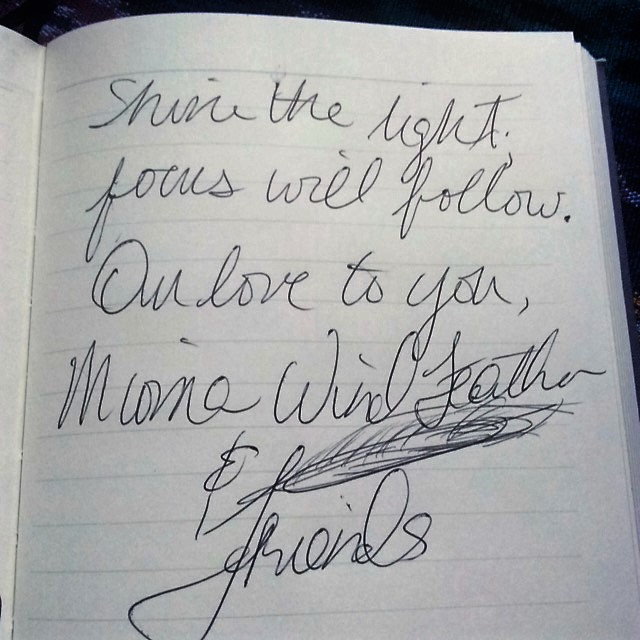 Shine the light,
focus will follow.
Our love to you,
Wind Feather
&
friends